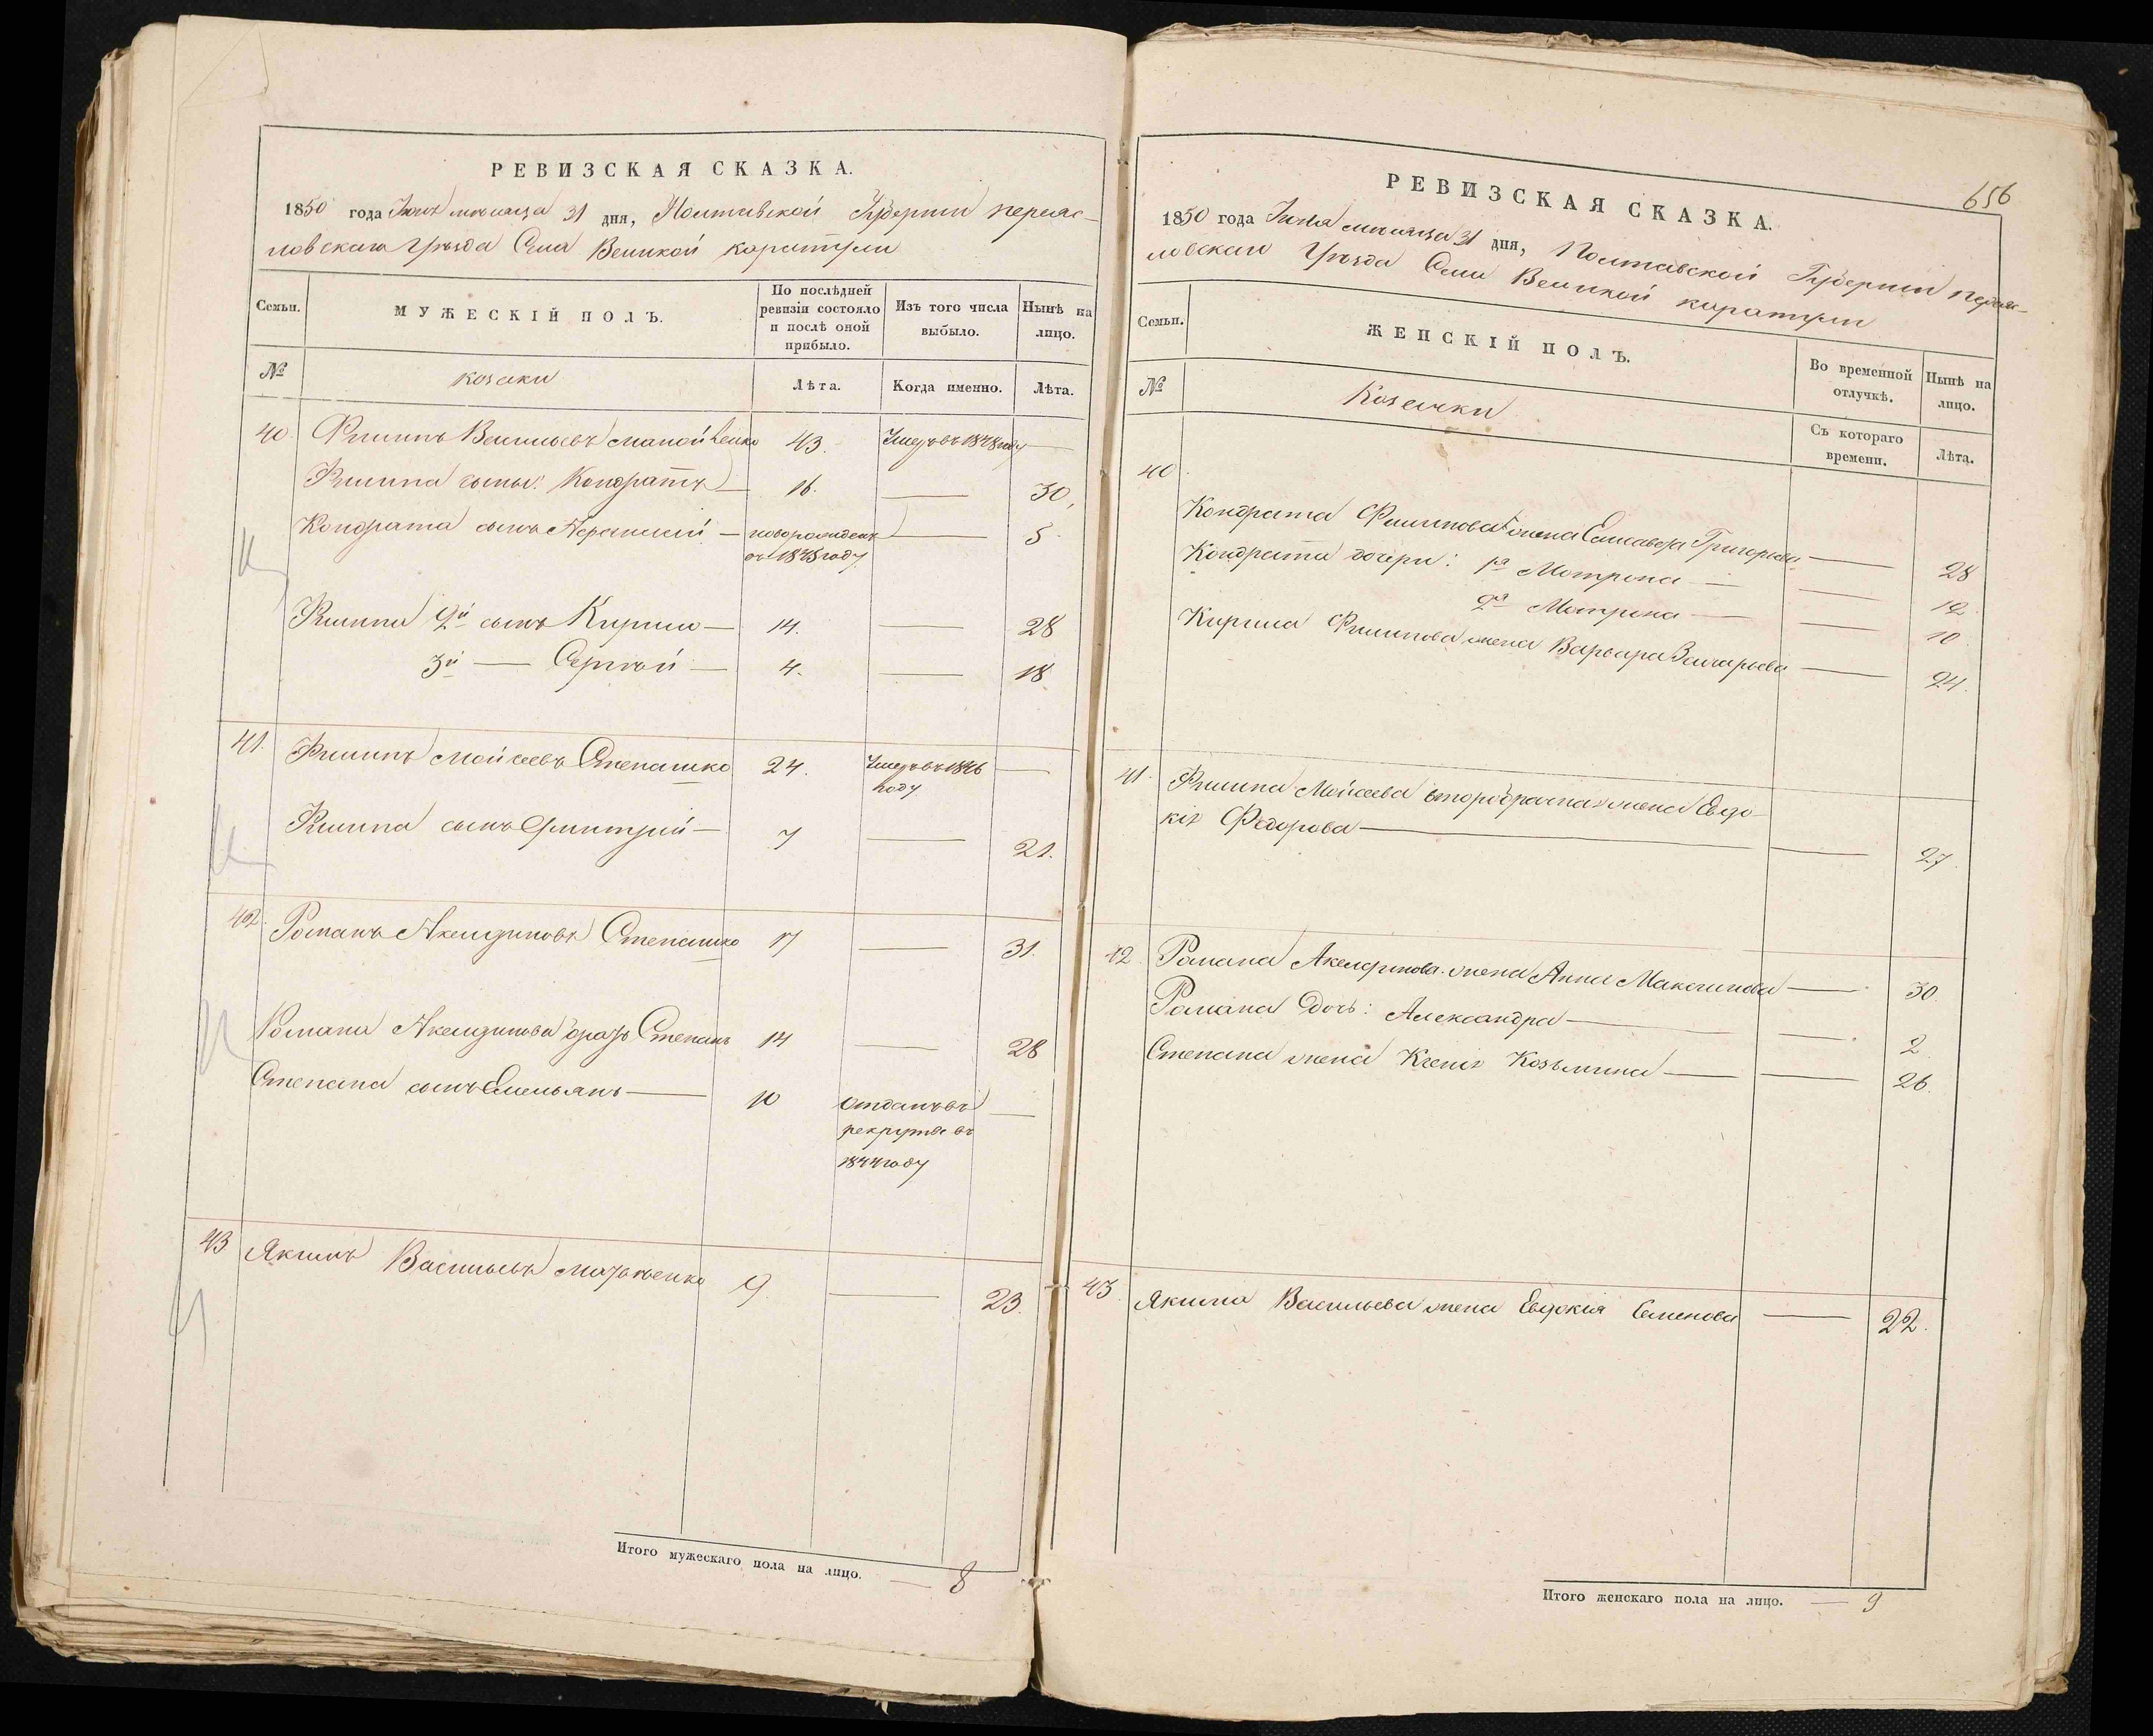 РЕВИЗСКАЯ СКАЗКА.
1850 года Іюля мѣсяца 31 дня, Полтавской Губерніи Переяс-
лавскаго Уѣзда Села Великой Каратули
Семьи. МУЖЕСКІЙ ПОЛЪ. По послѣдней ревизіи состояло и послѣ оной прибыло. Изъ того числа выбыло. Нынѣ на лицо.
№ козаки Лѣта. Когда именно. Лѣта.
40. Филипъ Васильевъ 43. Умеръ въ 1848 году —
Филипа сынъ: Кондратъ — 16. — 30.
Кондрата сынъ — новорожденъ — 5
въ 1845 году
Филипа 2й сынъ Кирило — 14. — 28
3й — Сергѣй — 4. — 18
41. Филипъ Мойсеевъ Степашко 24. Умеръ въ 1846 —
году
Филипа сынъ Дмитрій — 7 — 21.
42. Романъ Акендиновъ Степашко 17 — 31.
Романа Акендинова братъ Степанъ 14 — 28
Степана сынъ Емельянъ — 10 отданъ въ —
рекруты въ
1844 году
43 Якимъ Васильевъ 9. — 23.
Итого мужескаго пола на лицо. — 8
656
РЕВИЗСКАЯ СКАЗКА.
1850 года Іюля мѣсяца 31 дня, Полтавской Губерніи Переяс-
лавскаго Уѣзда Села Великой Каратули
Семьи. ЖЕНСКІЙ ПОЛЪ. Во временной отлучкѣ. Нынѣ на лицо.
№ Козачки Съ котораго времени. Лѣта.
40.
Кондрата Филипова жена Елисавета Григорьева — 28
Кондрата дочери: 1я Мотрона — — 12.
2я Мотрона — — 10.
Кирила Филипова жена Варвара Захарьева — 24.
41. Филипа Мойсеева второбрачная жена Евдо-
кія Федорова — — 27.
42. Романа Акендинова жена Анна Максимова — 30.
Романа дочь: Александра — — 2.
Степана жена Ксенія Козьмина — — 26.
43. Якима Васильева жена Евдокія Семенова — 22.
Итого женскаго пола на лицо. — 9